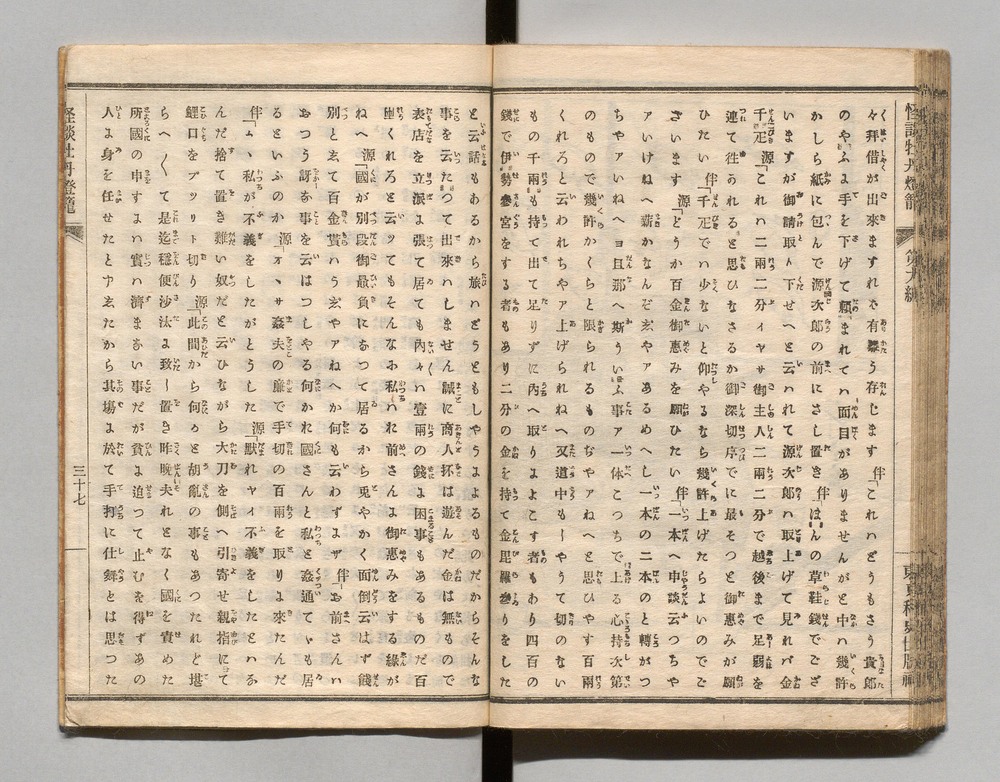 怪談牡丹燈籠
第九編
東京稗史出版社
々拝借が出來ますれバ有難う存じます 伴「これハどうもさう貴郎
のやふよ手を下げて頼まれてハ面目がありませんがと中ハ幾許
かしら紙に包んで源次郎の前にさし置き 伴「ほんの草鞋錢でござ
いますが御請取り下せへと云ハれて源次郎ハ取上げて見れバ金
千疋 源「これハ二兩二分イヤサ御主人二兩二分で越後まで足弱を
連て徃かれると思ひなさるか御深切序でに最そつと御惠みが願
ひたい 伴「千疋でハ少ないと仰やるなら幾許上げたらよいのでご
ざいます 源「どうか百金御惠みを願ひたい 伴「一本へ申談云つちや
アいけねへ薪かなんぞ玄やアあるめへし一本の二本のと轉がつ
ちやアいねへヨ旦那へ斯ういふ事ア一体こつちで上る心持次第
のもので幾許かくらと限られるものぢやアねへと思ひやす百兩
くれろと云われちやア上げられねへ又道中もしやうて切のない
もの千兩も持て出て足りずに内へ取りよよこす者もわり四百の
錢で伊勢參宮をする者もあり二分の金を持て金毘羅參りをした
と云話もあるから旅ハどうともしやうよよるものだからそんな
事を云たつて出來ハしません誠に商人抔は遊んだ金は無もので
表店を立派よ張て居ても内々ハ壹兩の錢よ困事もあるものだ百
兩くれろと云ッてもそんなお私ハれ前さんよ御惠みをする緣が
ねへ 源「國が別段御最負になつて居るから兎やかく面倒云はず餞
別と玄て百金貰ハう玄やアねへか何も云わずよサ 伴「お前さんハ
おつう訝な事を云はつしやる何かれ國さんと私と姦通でゝも居
るといふのか 源「オヽサ姦夫の廉で手切の百兩を取りよ來たんだ
伴「ムヽ私が不義をしたがどうした 源「默れヤイ不義をしたとハふ
んだ捨て置き難い奴だと云ひながら大刀を側へ引寄せ親指にて
鯉口をプツリト切り 源「此間から何かと胡亂の事もあつたれど堪
らへ〳〵て是迄穩便沙汰よ致し置き昨晚夫れとなく國を責めた
所國の申すよハ實ハ濟まない事だが貧よ迫つて止むを得ずあの
人よ身を任せたと申玄たから其場よ於て手打に仕舞とは思つた
怪談牡丹燈籠
三十七